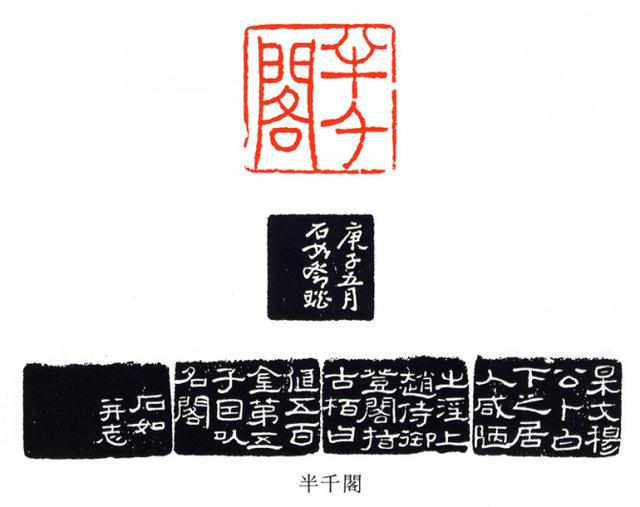 半千
閣
庚子五月
石如
文穆
公卜白
下之居
人咸陋
之涇上
趙侍御
登閣指
古柏曰
值五百
金第五
子因以
名閣
石如
并志
半千閣